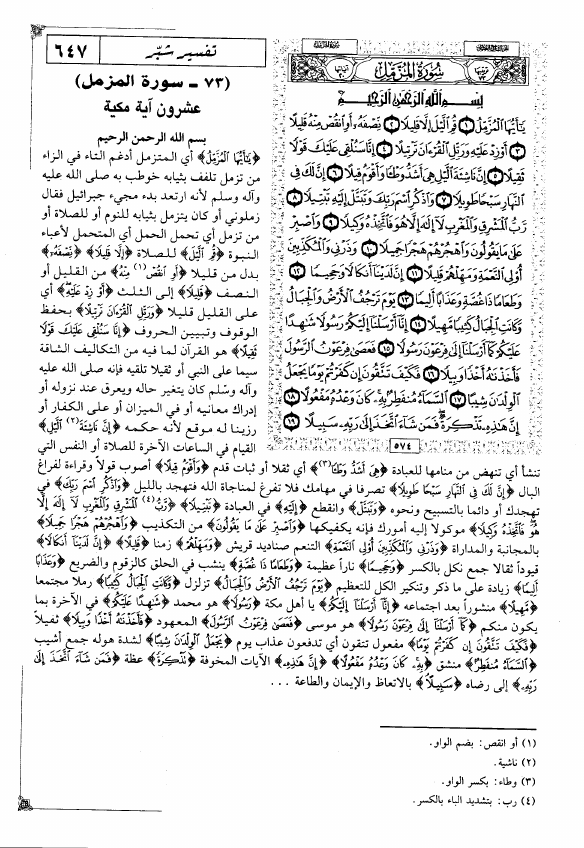 تفسير شبّر
٦٤٧
سُورَةُ المُزَّمِّلِ
بِسْمِ اللَّهِ الرَّحْمَٰنِ الرَّحِيمِ
يَٰٓأَيُّهَا ٱلْمُزَّمِّلُ ١ قُمِ ٱلَّيْلَ إِلَّا قَلِيلًا ٢ نِّصْفَهُۥٓ أَوِ ٱنقُصْ مِنْهُ قَلِيلًا
٣ أَوْ زِدْ عَلَيْهِ وَرَتِّلِ ٱلْقُرْءَانَ تَرْتِيلًا ٤ إِنَّا سَنُلْقِى عَلَيْكَ قَوْلًا
ثَقِيلًا ٥ إِنَّ نَاشِئَةَ ٱلَّيْلِ هِىَ أَشَدُّ وَطْـًٔا وَأَقْوَمُ قِيلًا ٦ إِنَّ لَكَ فِى
ٱلنَّهَارِ سَبْحًا طَوِيلًا ٧ وَٱذْكُرِ ٱسْمَ رَبِّكَ وَتَبَتَّلْ إِلَيْهِ تَبْتِيلًا ٨
رَّبُّ ٱلْمَشْرِقِ وَٱلْمَغْرِبِ لَآ إِلَٰهَ إِلَّا هُوَ فَٱتَّخِذْهُ وَكِيلًا ٩ وَٱصْبِرْ
عَلَىٰ مَا يَقُولُونَ وَٱهْجُرْهُمْ هَجْرًا جَمِيلًا ١٠ وَذَرْنِى وَٱلْمُكَذِّبِينَ
أُو۟لِى ٱلنَّعْمَةِ وَمَهِّلْهُمْ قَلِيلًا ١١ إِنَّ لَدَيْنَآ أَنكَالًا وَجَحِيمًا ١٢
وَطَعَامًا ذَا غُصَّةٍ وَعَذَابًا أَلِيمًا ١٣ يَوْمَ تَرْجُفُ ٱلْأَرْضُ وَٱلْجِبَالُ
وَكَانَتِ ٱلْجِبَالُ كَثِيبًا مَّهِيلًا ١٤ إِنَّآ أَرْسَلْنَآ إِلَيْكُمْ رَسُولًا شَٰهِدًا
عَلَيْكُمْ كَمَآ أَرْسَلْنَآ إِلَىٰ فِرْعَوْنَ رَسُولًا ١٥ فَعَصَىٰ فِرْعَوْنُ ٱلرَّسُولَ
فَأَخَذْنَٰهُ أَخْذًا وَبِيلًا ١٦ فَكَيْفَ تَتَّقُونَ إِن كَفَرْتُمْ يَوْمًا يَجْعَلُ
ٱلْوِلْدَٰنَ شِيبًا ١٧ ٱلسَّمَآءُ مُنفَطِرٌۢ بِهِۦ كَانَ وَعْدُهُۥ مَفْعُولًا ١٨
إِنَّ هَٰذِهِۦ تَذْكِرَةٌ فَمَن شَآءَ ٱتَّخَذَ إِلَىٰ رَبِّهِۦ سَبِيلًا ١٩
٥٧٤
(٧٣ ـ سورة المزمل)
عشرون آية مكية
بسم الله الرحمن الرحيم
﴿يَٰٓأَيُّهَا ٱلْمُزَّمِّلُ﴾ أي المتزمل أدغم التاء في الزاء
من تزمل تلفف بثيابه خوطب به صلى الله عليه
وآله وسلم لأنه ارتعد بدء مجيء جبرائيل فقال
زملوني أو كان يتزمل بثيابه للنوم أو للصلاة أو
من تزمل أي تحمل الحمل أي المتحمل لأعباء
النبوة ﴿قُمِ ٱلَّيْلَ﴾ للصلاة ﴿إِلَّا قَلِيلًا﴾ ﴿نِّصْفَهُۥٓ﴾
بدل من قليلا ﴿أَوِ ٱنقُصْ (١) مِنْهُ﴾ من القليل أو
النصف ﴿قَلِيلًا﴾ إلى الثلث ﴿أَوْ زِدْ عَلَيْهِ﴾ أي
على القليل قليلا ﴿وَرَتِّلِ ٱلْقُرْءَانَ تَرْتِيلًا﴾ بحفظ
الوقوف وتبيين الحروف ﴿إِنَّا سَنُلْقِى عَلَيْكَ قَوْلًا
ثَقِيلًا﴾ هو القرآن لما فيه من التكاليف الشاقة
سيما على النبي أو ثقيلا تلقيه فإنه صلى الله عليه
وآله وسلم كان يتغير حاله ويعرق عند نزوله أو
إدراك معانيه أو في الميزان أو على الكفار أو
رزينا له موقع لأنه حكمه ﴿إِنَّ نَاشِئَةَ (٢) ٱلَّيْلِ﴾
القيام في الساعات الآخرة للصلاة أو النفس التي
تنشأ أي تنهض من منامها للعبادة ﴿هِىَ أَشَدُّ وَطْـًٔا (٣)﴾ أي ثقلا أو ثبات قدم ﴿وَأَقْوَمُ قِيلًا﴾ أصوب قولاً وقراءة لفراغ
البال ﴿إِنَّ لَكَ فِى ٱلنَّهَارِ سَبْحًا طَوِيلًا﴾ تصرفا في مهامك فلا تفرغ لمناجاة الله فتهجد بالليل ﴿وَٱذْكُرِ ٱسْمَ رَبِّكَ﴾ في
تهجدك أو دائما بالتسبيح ونحوه ﴿وَتَبَتَّلْ﴾ وانقطع ﴿إِلَيْهِ﴾ في العبادة ﴿تَبْتِيلًا﴾ ﴿رَّبُّ (٤) ٱلْمَشْرِقِ وَٱلْمَغْرِبِ لَآ إِلَٰهَ إِلَّا
هُوَ فَٱتَّخِذْهُ وَكِيلًا﴾ موكولا إليه أمورك فإنه يكفيكها ﴿وَٱصْبِرْ عَلَىٰ مَا يَقُولُونَ﴾ من التكذيب ﴿وَٱهْجُرْهُمْ هَجْرًا جَمِيلًا﴾
بالمجانبة والمداراة ﴿وَذَرْنِى وَٱلْمُكَذِّبِينَ أُو۟لِى ٱلنَّعْمَةِ﴾ التنعم صناديد قريش ﴿وَمَهِّلْهُمْ﴾ زمنا ﴿قَلِيلًا﴾ ﴿إِنَّ لَدَيْنَآ أَنكَالًا﴾
قيوداً ثقالا جمع نكل بالكسر ﴿وَجَحِيمًا﴾ ناراً عظيمة ﴿وَطَعَامًا ذَا غُصَّةٍ﴾ ينشب في الحلق كالزقوم والضريع ﴿وَعَذَابًا
أَلِيمًا﴾ زيادة على ما ذكر وتنكير الكل للتعظيم ﴿يَوْمَ تَرْجُفُ ٱلْأَرْضُ وَٱلْجِبَالُ﴾ تزلزل ﴿وَكَانَتِ ٱلْجِبَالُ كَثِيبًا﴾ رملا مجتمعا
﴿مَّهِيلًا﴾ منشوراً بعد اجتماعه ﴿إِنَّآ أَرْسَلْنَآ إِلَيْكُمْ﴾ يا أهل مكة ﴿رَسُولًا﴾ هو محمد ﴿شَٰهِدًا عَلَيْكُمْ﴾ في الآخرة بما
يكون منكم ﴿كَمَآ أَرْسَلْنَآ إِلَىٰ فِرْعَوْنَ رَسُولًا﴾ هو موسى ﴿فَعَصَىٰ فِرْعَوْنُ ٱلرَّسُولَ﴾ المعهود ﴿فَأَخَذْنَٰهُ أَخْذًا وَبِيلًا﴾ ثقيلاً
﴿فَكَيْفَ تَتَّقُونَ إِن كَفَرْتُمْ يَوْمًا﴾ مفعول تتقون أي تدفعون عذاب يوم ﴿يَجْعَلُ ٱلْوِلْدَٰنَ شِيبًا﴾ لشدة هوله جمع أشيب
﴿ٱلسَّمَآءُ مُنفَطِرٌۢ﴾ منشق ﴿بِهِۦ كَانَ وَعْدُهُۥ مَفْعُولًا﴾ ﴿إِنَّ هَٰذِهِۦ﴾ الآيات المخوفة ﴿تَذْكِرَةٌ﴾ عظة ﴿فَمَن شَآءَ ٱتَّخَذَ إِلَىٰ
رَبِّهِۦ﴾ إلى رضاه ﴿سَبِيلًا﴾ بالاتعاظ والإيمان والطاعة ...
(١) أو انقص: بضم الواو.
(٢) ناشية.
(٣) وطاء: بكسر الواو.
(٤) رب: بتشديد الباء بالكسر.